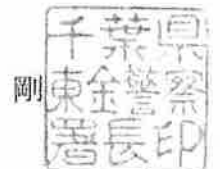 剛
千葉県
東金警察
署長印